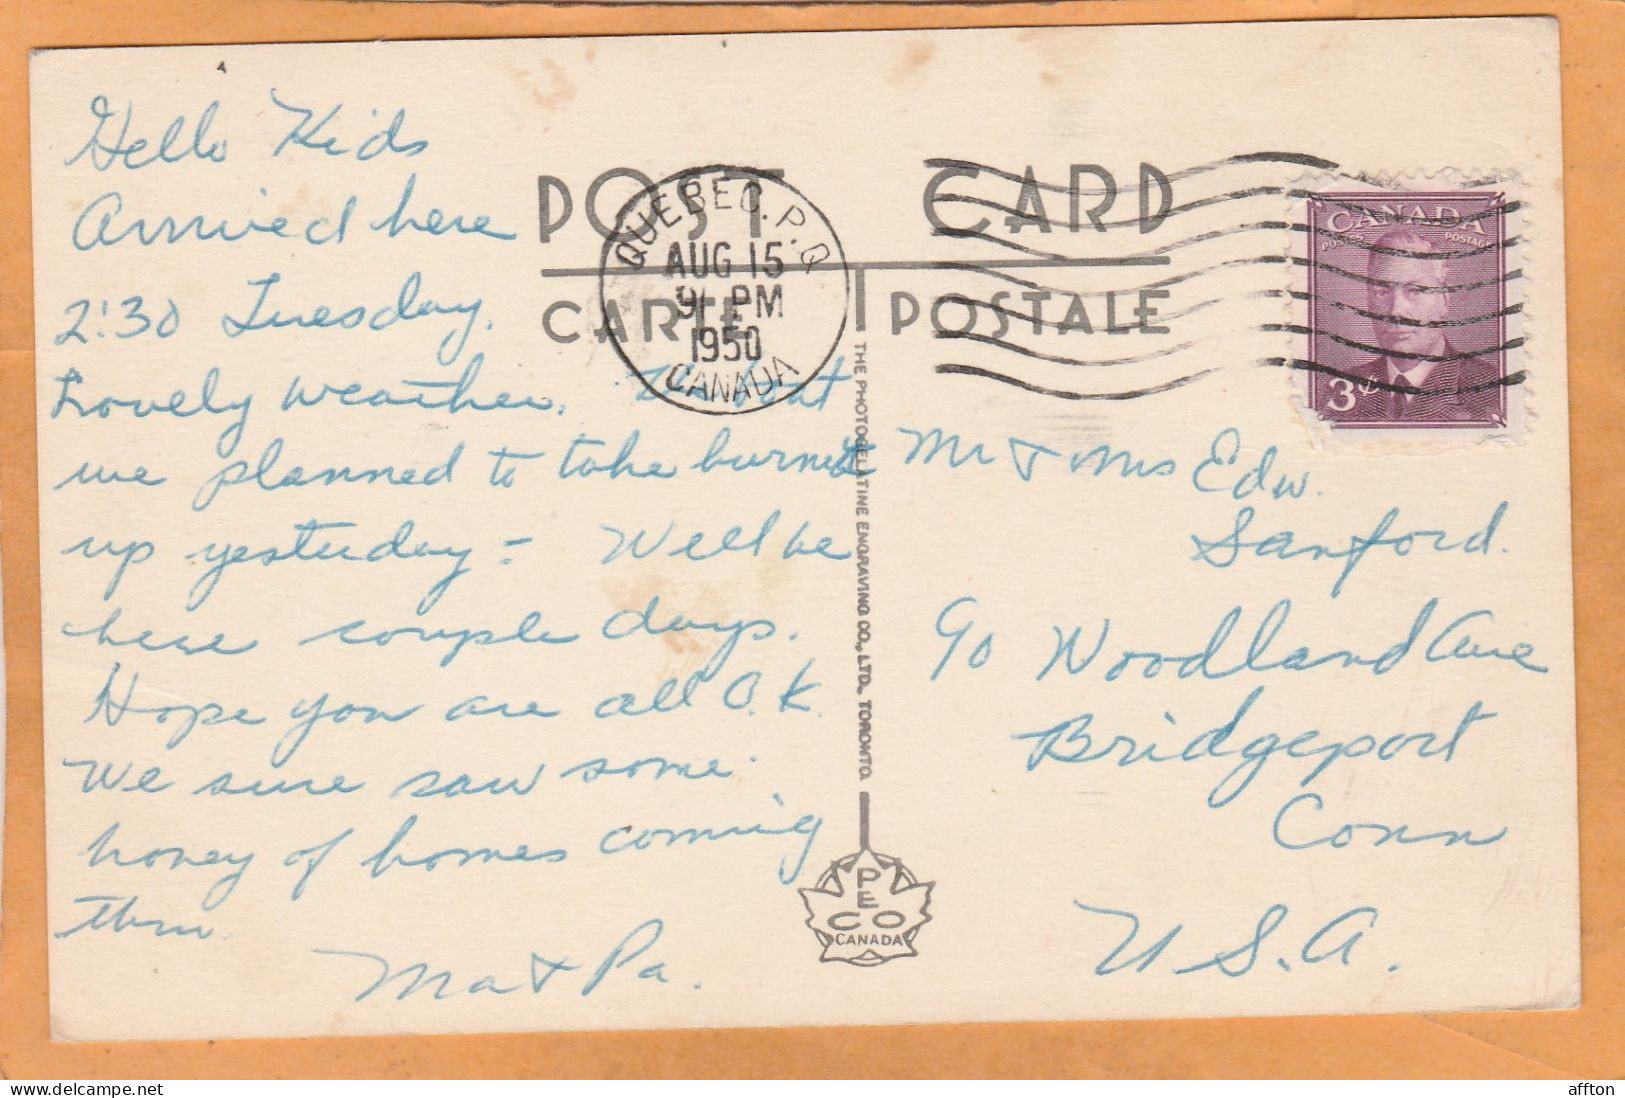 Hello Kids
Arrived here
2:30 Tuesday.
Lovely weather.
we planned to take
up yesterday - Will be
here couple days.
Hope you are all O.K.
We sure saw some
honey of homes coming
thru.
Ma & Pa.
POST CARD
CARTE POSTALE
QUEBEC. P.Q.
AUG 15
9 PM
1950
CANADA
CANADA
POSTES POSTAGE
3¢
THE PHOTOGELATINE ENGRAVING CO., LTD. TORONTO.
Mr & Mrs Edw.
Sanford.
90 Woodland Ave
Bridgeport
Conn
U.S.A.
PECO
CANADA
affton